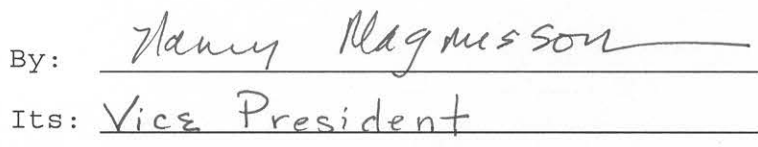 By: Nancy Magnusson
Its: Vice President